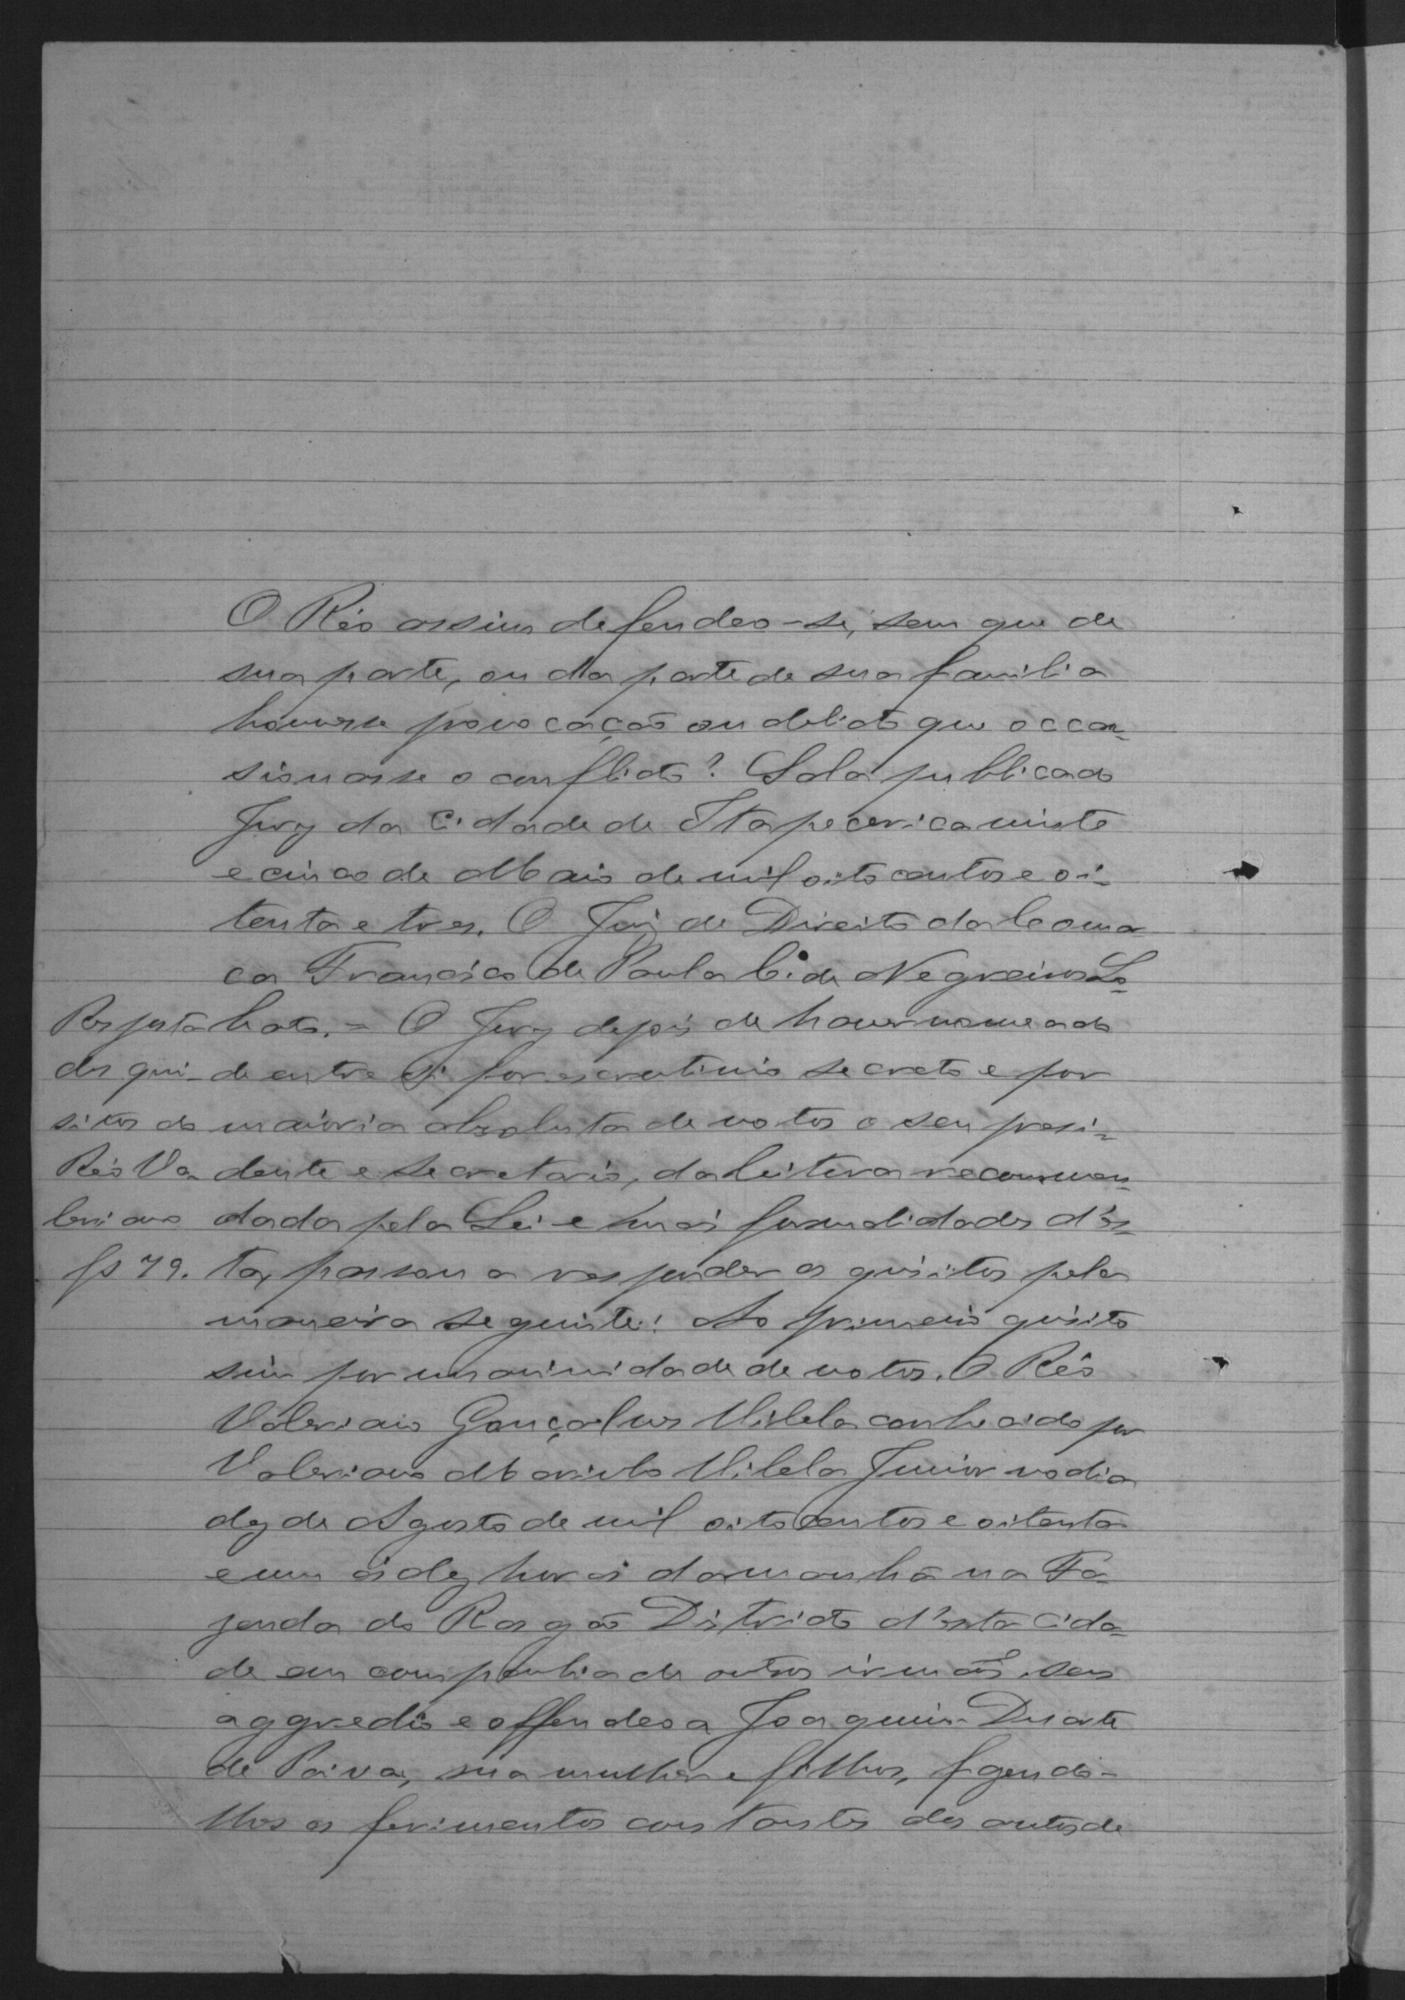 O Réo assim defendeo-se, sem que de
sua parte, ou da parte de sua familia
houvesse provocação ou delicto que occa-
sionasse o conflicto? Sala publica do
Jury da Cidade de Itapecerica vinte
e cinco de Maio de mil oito centos e oi-
tenta e tres. O Juiz de Direito da Comar
ca Francisco de Paula C. de Negreiros Lo-
bato. = O Jury depois de haver nomeado
de entre si por escrutinio secreto e por
maioria absoluta de votos o seu presi-
dente e secretario, da leitura recommen-
dada pela Lei e mais formalidades d'es-
ta, passou a responder os quisitos pela
maneira seguinte: Ao primeiro quisito
sim por unanimidade de votos. O Réo
Valeriano Gonçalves Vilela conhecido por
Valeriano Manoel Vilela Junior no dia
dez de Agosto de mil oito centos e oitenta
e um ás dez horas da manhã na Fa-
zenda do Rasgão Districto d'esta Cida-
de em companhia de outros irmãos seus
aggredio e offendeo a Joaquim Duarte
de Paiva, sua mulher e filhos, fazendo-
lhes os ferimentos constantes dos autos de
Resposta
dos qui-
sitos do
Réo Va-
leriano
fs 79.